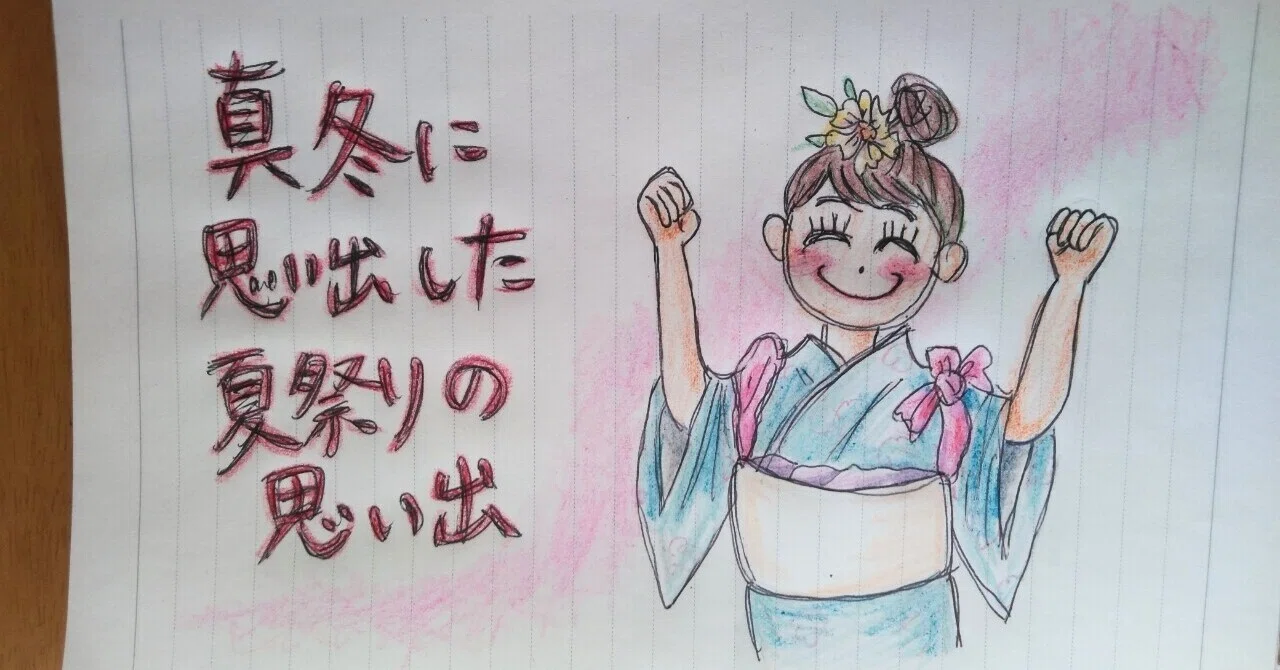 真冬に
思い出した
夏祭りの
思い出